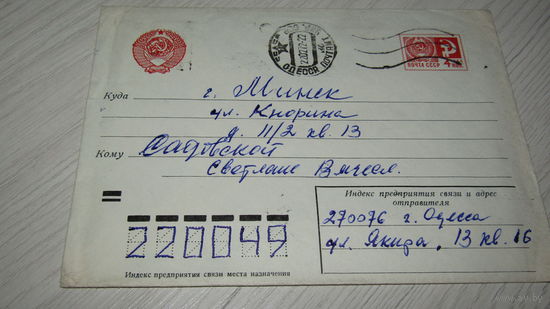 ОДЕССА
ПОЧТА СССР
4 к
Куда
г. Минск
ул. Кнорина
д. 11/2 кв. 13
Кому
Садовской
Светлане Вячесл.
Индекс предприятия связи и адрес
отправителя
270076 г. Одесса
ул. Якира, 13 кв. 16
220049
Индекс предприятия связи места назначения